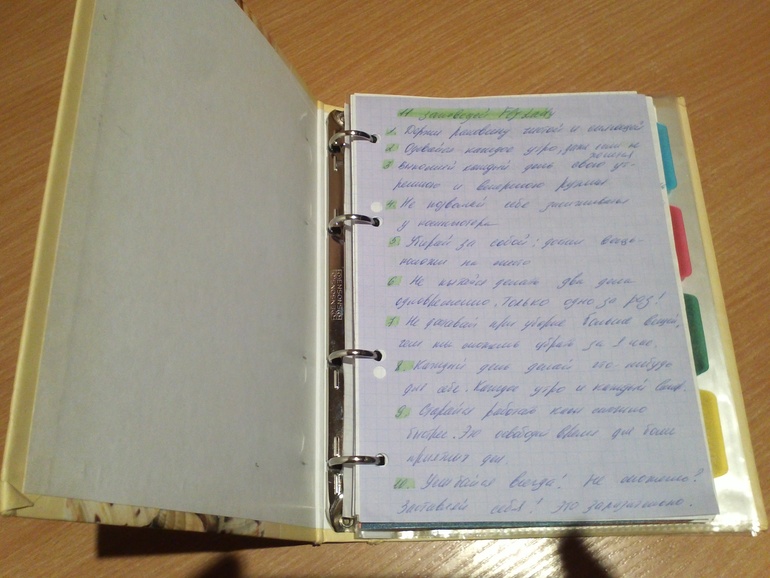 11 заповедей Fly Lady
1. Держи раковину чистой и сияющей
2. Одевайся каждое утро, даже если не
хочется
3. Выполняй каждый день свою ут-
реннюю и вечернюю рутины
4. Не позволяй себе засиживаться
у компьютера
5. Убирай за собой:
на место
6. Не пытайся делать два дела
одновременно. Только одно за раз!
7. Не доставай при уборке больше вещей,
чем ты сможешь убрать за 1 час.
8. Каждый день делай что-нибудь
для себя. Каждое утро и каждый вечер.
9. Старайся работать как можно
быстрее. Это освободит время для более
приятных дел.
10. Улыбайся всегда! Не можешь?
Заставляй себя! Это заразительно.